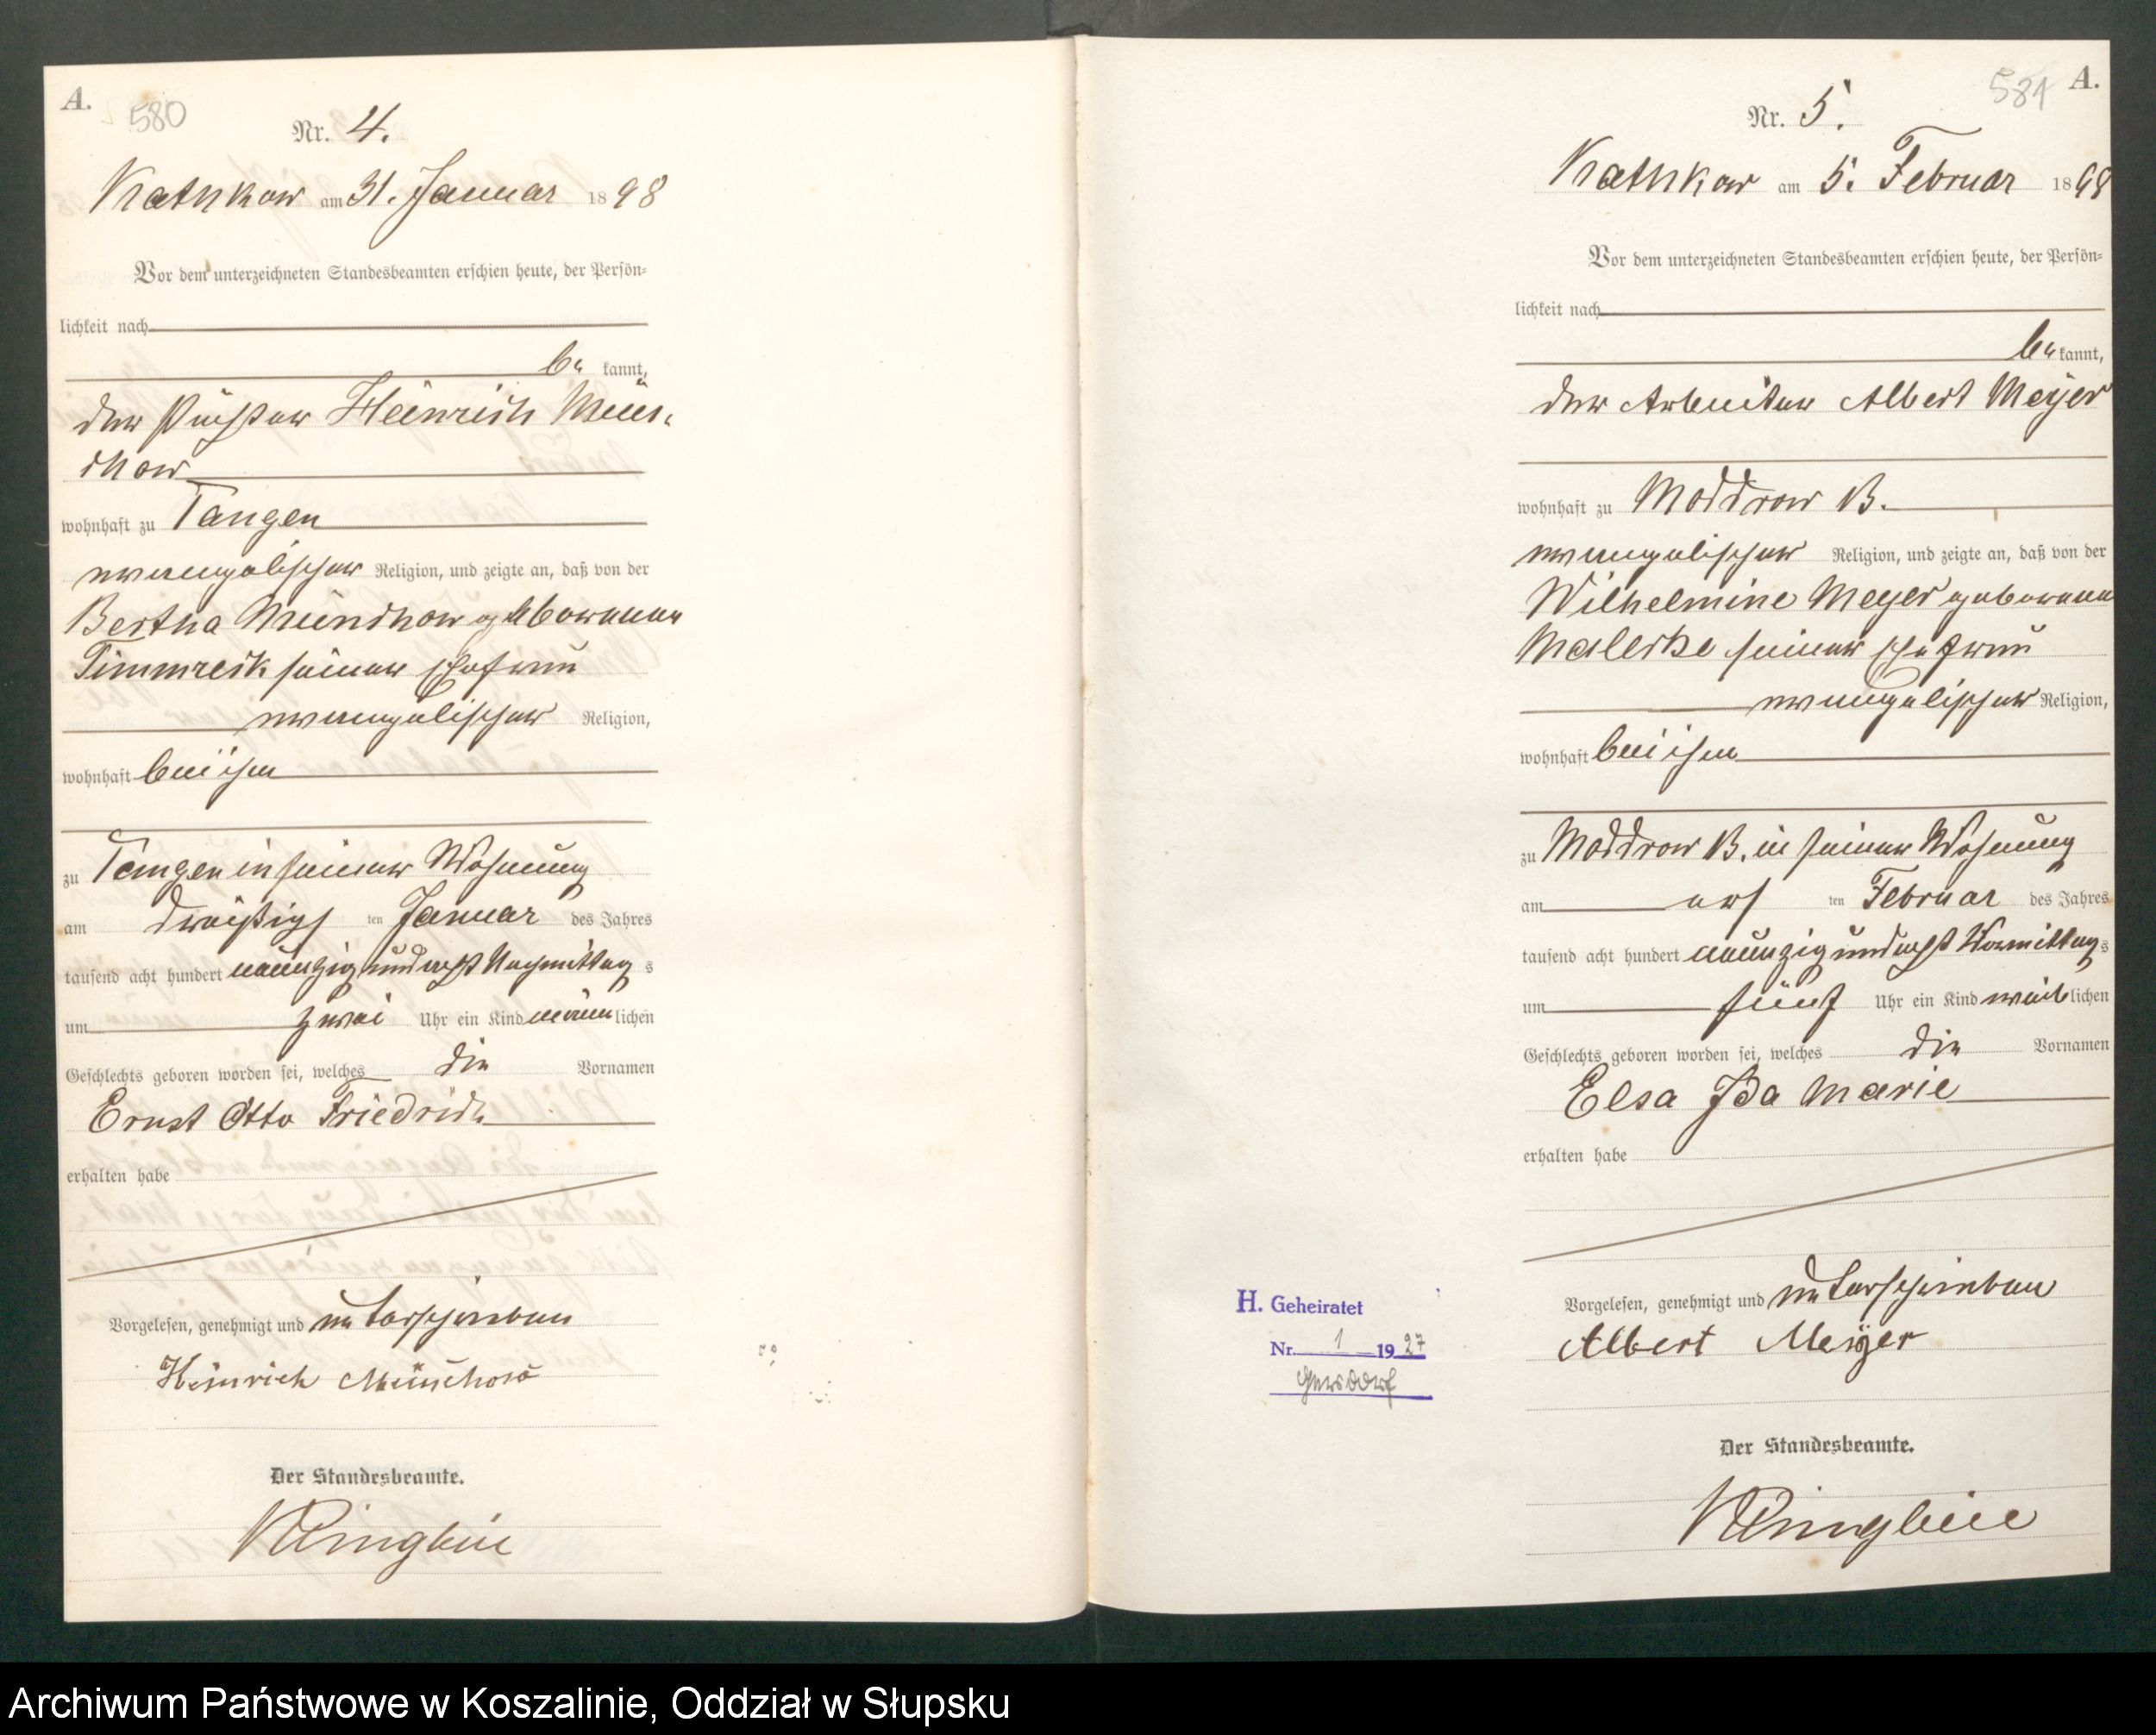 A.
580
Nr. 4.
Kathkow am 31. Januar 1898
Vor dem unterzeichneten Standesbeamten erschien heute, der Persön-
lichkeit nach
be kannt,
der Heinrich Mün-
chow
wohnhaft zu Tangen
evangelischer Religion, und zeigte an, daß von der
Bertha Münchow geborenen
Timmreck seiner Ehefrau
evangelischer Religion,
wohnhaft bei ihm
zu Tangen in seiner Wohnung
am dreißigs ten Januar des Jahres
tausend acht hundert neunzig und acht Nachmittag s
um zwei Uhr ein Kind männ lichen
Geschlechts geboren worden sei, welches die Vornamen
Ernst Otto Friedrich
erhalten habe
Vorgelesen, genehmigt und unterschrieben
Heinrich Münchow
Der Standesbeamte.
A.
581
Nr. 5.
Kathkow am 5. Februar 1898
Vor dem unterzeichneten Standesbeamten erschien heute, der Persön-
lichkeit nach
be kannt,
der Arbeiter Albert Meyer
wohnhaft zu Moddrow B.
evangelischer Religion, und zeigte an, daß von der
Wilhelmine Meyer geborene
seiner Ehefrau
evangelischer Religion,
wohnhaft bei ihm
zu Moddrow B. in seiner Wohnung
am ers ten Februar des Jahres
tausend acht hundert neunzig und acht Vormittag s
um fünf Uhr ein Kind weib lichen
Geschlechts geboren worden sei, welches die Vornamen
Elsa Ida Marie
erhalten habe
H. Geheiratet
Nr. 1 1927
Gersdorf
Vorgelesen, genehmigt und unterschrieben
Albert Meyer
Der Standesbeamte.
Archiwum Państwowe w Koszalinie, Oddział w Słupsku